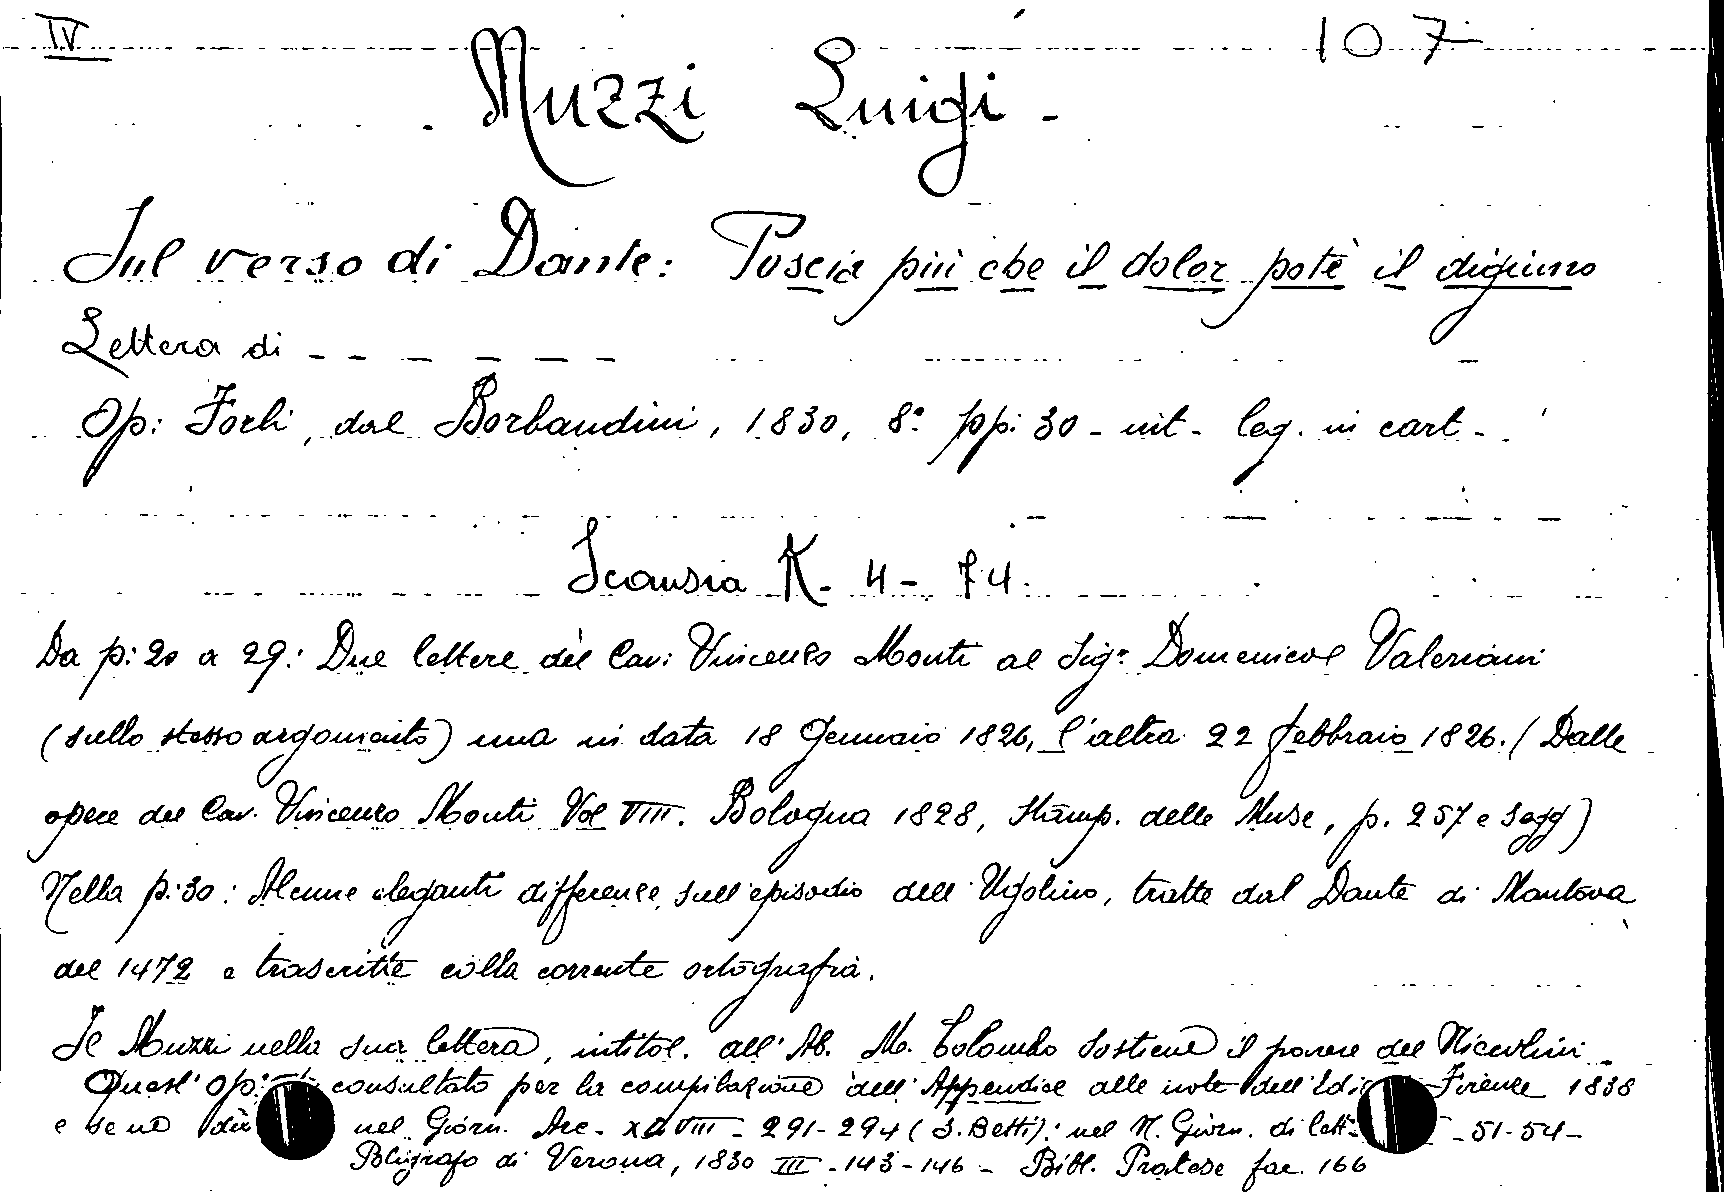 IV 107
Muzzi Luigi -
Sul verso di Dante: Poscia più che il dolor potè il digiuno
Lettera di - - - - - - -
Op: Forlì, dal Borbandini, 1830, 8° pp: 30 - int - leg. in cart -
Scansia K. 4 - 74.
Da p: 20 a 29: Due lettere del Cav: Vincenzo Monti al Sigr Domenico Valeriani
(sullo stesso argomento) una in data 18 Gennaio 1826, l'altra 22 febbraio 1826. (Dalle
opere del Cav. Vincenzo Monti Vol VIII. Bologna 1828, Stamp. delle Muse, p. 257 e segg)
Nella p: 30: Alcune eleganti differenze sull'episodio dell'Ugolino, tratte dal Dante di Mantova
del 1472 e trascritte colla corrente ortografia.
Il Muzzi nella sua lettera, intitol. all'Ab. M. Colombo sostiene il parere del Niccolini
Quest' op: consultato per la compilazione dell'Appendice alle note dell' Firenze 1838
e se ne nel Giorn. Arc - 291-294 (S. Betti): nel N. Giorn. di lett. - 51-54 -
Poligrafo di Verona, 1830 III - 143-146 - Bibl. Pratese fac. 166